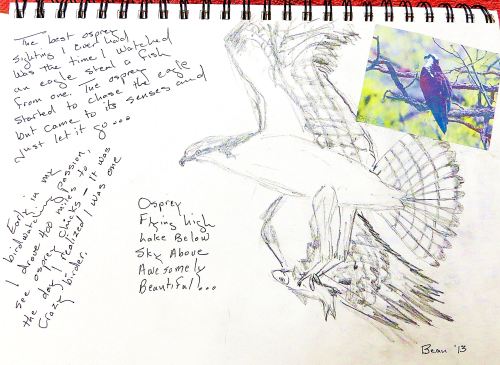 The best osprey
sighting I ever had
was the time I watched
an eagle steal a fish
from one. The osprey
started to chase the eagle
but came to its senses and
just let it go...
Early in my
birdwatching passion,
I drove 400 miles to
see osprey chicks - it was
the day I realized I was one
crazy birder.
Osprey
Flying high
Lake Below
Sky Above
Awesomely
Beautiful...
Bean '13